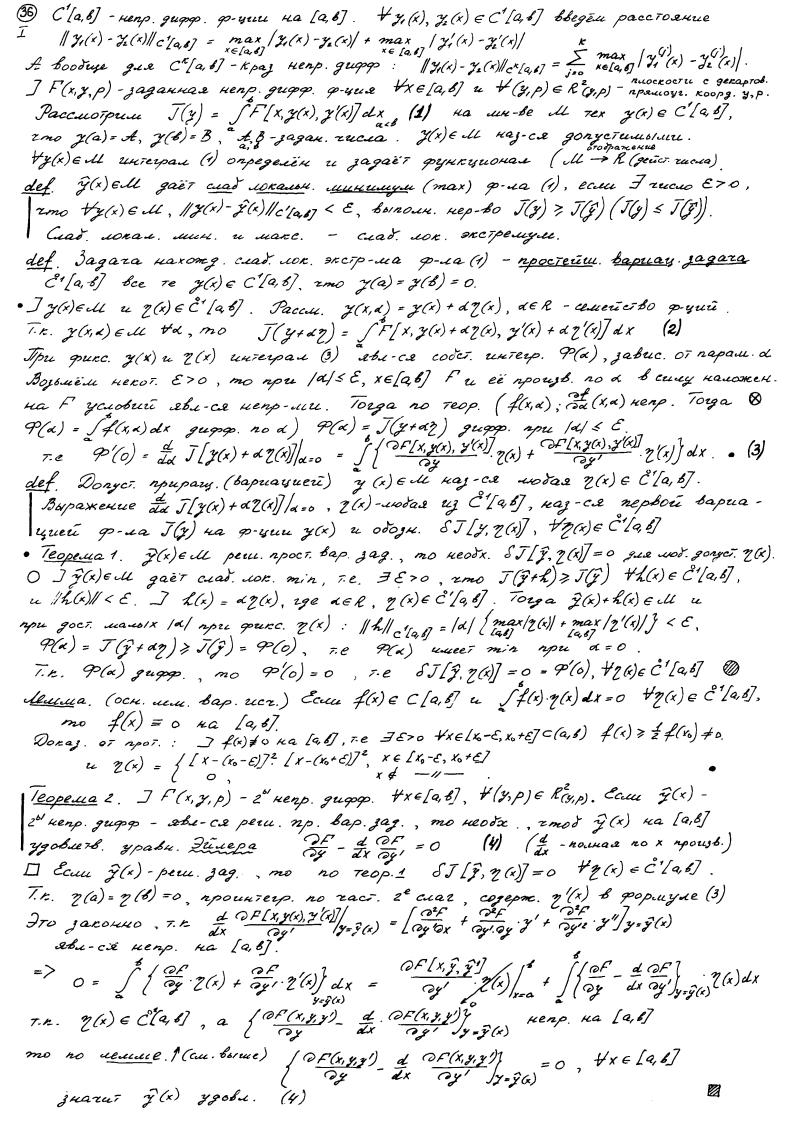 36 I C¹[a,b] - непр. дифф. ф-ции на [a,b]. ∀ y₁(x), y₂(x) ∈ C¹[a,b] введём расстояние
||y₁(x) - y₂(x)||_{C¹[a,b]} = max_{x∈[a,b]} |y₁(x) - y₂(x)| + max_{x∈[a,b]} |y₁'(x) - y₂'(x)|
А вообще для Cᵏ[a,b] - k раз непр. дифф: ||y₁(x) - y₂(x)||_{Cᵏ[a,b]} = Σ_{j=0}^{k} max_{x∈[a,b]} |y₁^{(j)}(x) - y₂^{(j)}(x)|.
] F(x,y,p) - заданная непр. дифф. ф-ция ∀x∈[a,b] и ∀(y,p)∈R²(y,p) - плоскости с декартов. прямоуг. коорд. y,p.
Рассмотрим J(y) = ∫_a^b F[x, y(x), y'(x)] dx (1) a<b на мн-ве M тех y(x) ∈ C¹[a,b],
что y(a)=A, y(b)=B, A,B - задан. числа. a,b y(x)∈M наз-ся допустимыми.
∀y(x)∈M интеграл (1) определён и задаёт функционал (M → R (дейст. числа) отображение
def. ŷ(x)∈M даёт слаб локальн. минимум (max) ф-ла (1), если ∃ число ε>0,
что ∀y(x)∈M, ||y(x) - ŷ(x)||_{C¹[a,b]} < ε, выполн. нер-во J(y) ≥ J(ŷ) (J(y) ≤ J(ŷ)).
Слаб. локал. мин. и макс. - слаб. лок. экстремум.
def. Задача нахожд. слаб. лок. экстр-ма ф-ла (1) - простейш. вариац. задача
C̊¹[a,b] все те y(x)∈C¹[a,b], что y(a)=y(b)=0.
• ] y(x)∈M и η(x)∈C̊¹[a,b]. Рассм. y(x,α) = y(x) + αη(x), α∈R - семейство ф-ций.
Т.к. y(x,α)∈M ∀α, то J(y+αη) = ∫_a^b F[x, y(x)+αη(x), y'(x)+αη'(x)] dx (2)
При фикс. y(x) и η(x) интеграл (3) явл-ся собст. интегр. Φ(α), завис. от парам. α
Возьмём некот. ε>0, то при |α|≤ε, x∈[a,b] F и её произв. по α в силу наложен.
на F условий явл-ся непр-ми. Тогда по теор. (f(x,α); ∂f/∂α (x,α) непр. Тогда ⊗
Φ(α) = ∫_a^b f(x,α)dx дифф. по α) Φ(α) = J(y+αη) дифф. при |α|≤ε.
т.е Φ'(0) = d/dα J[y(x)+αη(x)]|_{α=0} = ∫_a^b {∂F[x,y(x),y'(x)]/∂y · η(x) + ∂F[x,y(x),y'(x)]/∂y' · η'(x)} dx. • (3)
def. Допуст. приращ. (вариацией) y(x)∈M наз-ся любая η(x)∈C̊¹[a,b].
Выражение d/dα J[y(x)+αη(x)]|_{α=0}, η(x) - любая из C̊¹[a,b], наз-ся первой вариа-
цией ф-ла J(y) на ф-ции y(x) и обозн. δJ[y,η(x)], ∀η(x)∈C̊¹[a,b]
• Теорема 1. ŷ(x)∈M реш. прост. вар. зад., то необх. δJ[ŷ,η(x)]=0 для люб. допуст. η(x).
○ ] ŷ(x)∈M даёт слаб. лок. min, т.е. ∃ε>0, что J(ŷ+h) ≥ J(ŷ) ∀h(x)∈C̊¹[a,b],
и ||h(x)||<ε. ] h(x) = αη(x), где α∈R, η(x)∈C̊¹[a,b]. Тогда ŷ(x)+h(x)∈M и
при дост. малых |α| при фикс. η(x): ||h||_{C¹[a,b]} = |α| {max_{[a,b]}|η(x)| + max_{[a,b]}|η'(x)|} < ε,
Φ(α) = J(ŷ+αη) ≥ J(ŷ) = Φ(0), т.е Φ(α) имеет min при α=0.
Т.к. Φ(α) дифф., то Φ'(0)=0, т.е δJ[ŷ,η(x)] = 0 = Φ'(0), ∀η(x)∈C̊¹[a,b]
Лемма. (осн. лм. вар. исч.) Если f(x)∈C[a,b] и ∫_a^b f(x)·η(x)dx=0 ∀η(x)∈C̊¹[a,b],
то f(x) ≡ 0 на [a,b].
Доказ. от прот.: ] f(x)≢0 на [a,b], т.е ∃ε>0 ∀x∈[x₀-ε, x₀+ε]⊂(a,b) f(x) ≥ ½ f(x₀) ≠ 0.
и η(x) = { [x-(x₀-ε)]²·[x-(x₀+ε)]², x∈[x₀-ε, x₀+ε]
0, x∉ —//— •
Теорема 2. ] F(x,y,p) - 2ы непр. дифф. ∀x∈[a,b], ∀(y,p)∈R²(y,p). Если ŷ(x) -
2ы непр. дифф - явл-ся реш. пр. вар. зад., то необх., чтоб ŷ(x) на [a,b]
удовлетв. уравн. Эйлера ∂F/∂y - d/dx ∂F/∂y' = 0 (4) (d/dx - полная по x произв.)
□ Если ŷ(x) - реш. зад., то по теор.1 δJ[ŷ,η(x)]=0 ∀η(x)∈C̊¹[a,b].
Т.к. η(a)=η(b)=0, проинтегр. по част. 2е слаг, содерж. η'(x) в формуле (3)
Это законно, т.к d/dx ∂F[x,y(x),y'(x)]/∂y' |_{y=ŷ(x)} = [∂²F/∂y'∂x + ∂²F/∂y'∂y · y' + ∂²F/∂y'² · y'']_{y=ŷ(x)}
явл-ся непр. на [a,b].
=> 0 = ∫_a^b {∂F/∂y · η(x) + ∂F/∂y' · η'(x)}_{y=ŷ(x)} dx = ∂F[x,ŷ,ŷ']/∂y' η(x)|_{x=a}^b =0 + ∫_a^b {∂F/∂y - d/dx ∂F/∂y'}_{y=ŷ(x)} · η(x)dx
т.к. η(x)∈C̊¹[a,b], а {∂F(x,y,y')/∂y - d/dx · ∂F(x,y,y')/∂y'}_{y=ŷ(x)} непр. на [a,b]
то по лемме ↑ (см. выше) {∂F(x,y,y')/∂y - d/dx ∂F(x,y,y')/∂y'}_{y=ŷ(x)} = 0, ∀x∈[a,b]
значит ŷ(x) удовл. (4)